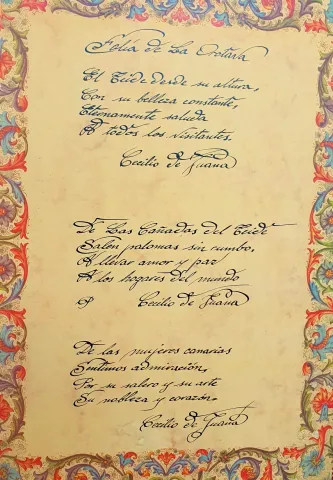 Folía de La Orotava
El Teide desde su altura,
Con su belleza constante,
Eternamente saluda
A todos los visitantes.
Cecilio de Juana
De Las Cañadas del Teide
Salen palomas sin rumbo,
A llevar amor y paz
A los hogares del mundo
Cecilio de Juana
De las mujeres canarias
Sentimos admiración,
Por su salero y su arte
Su nobleza y corazón.
Cecilio de Juana